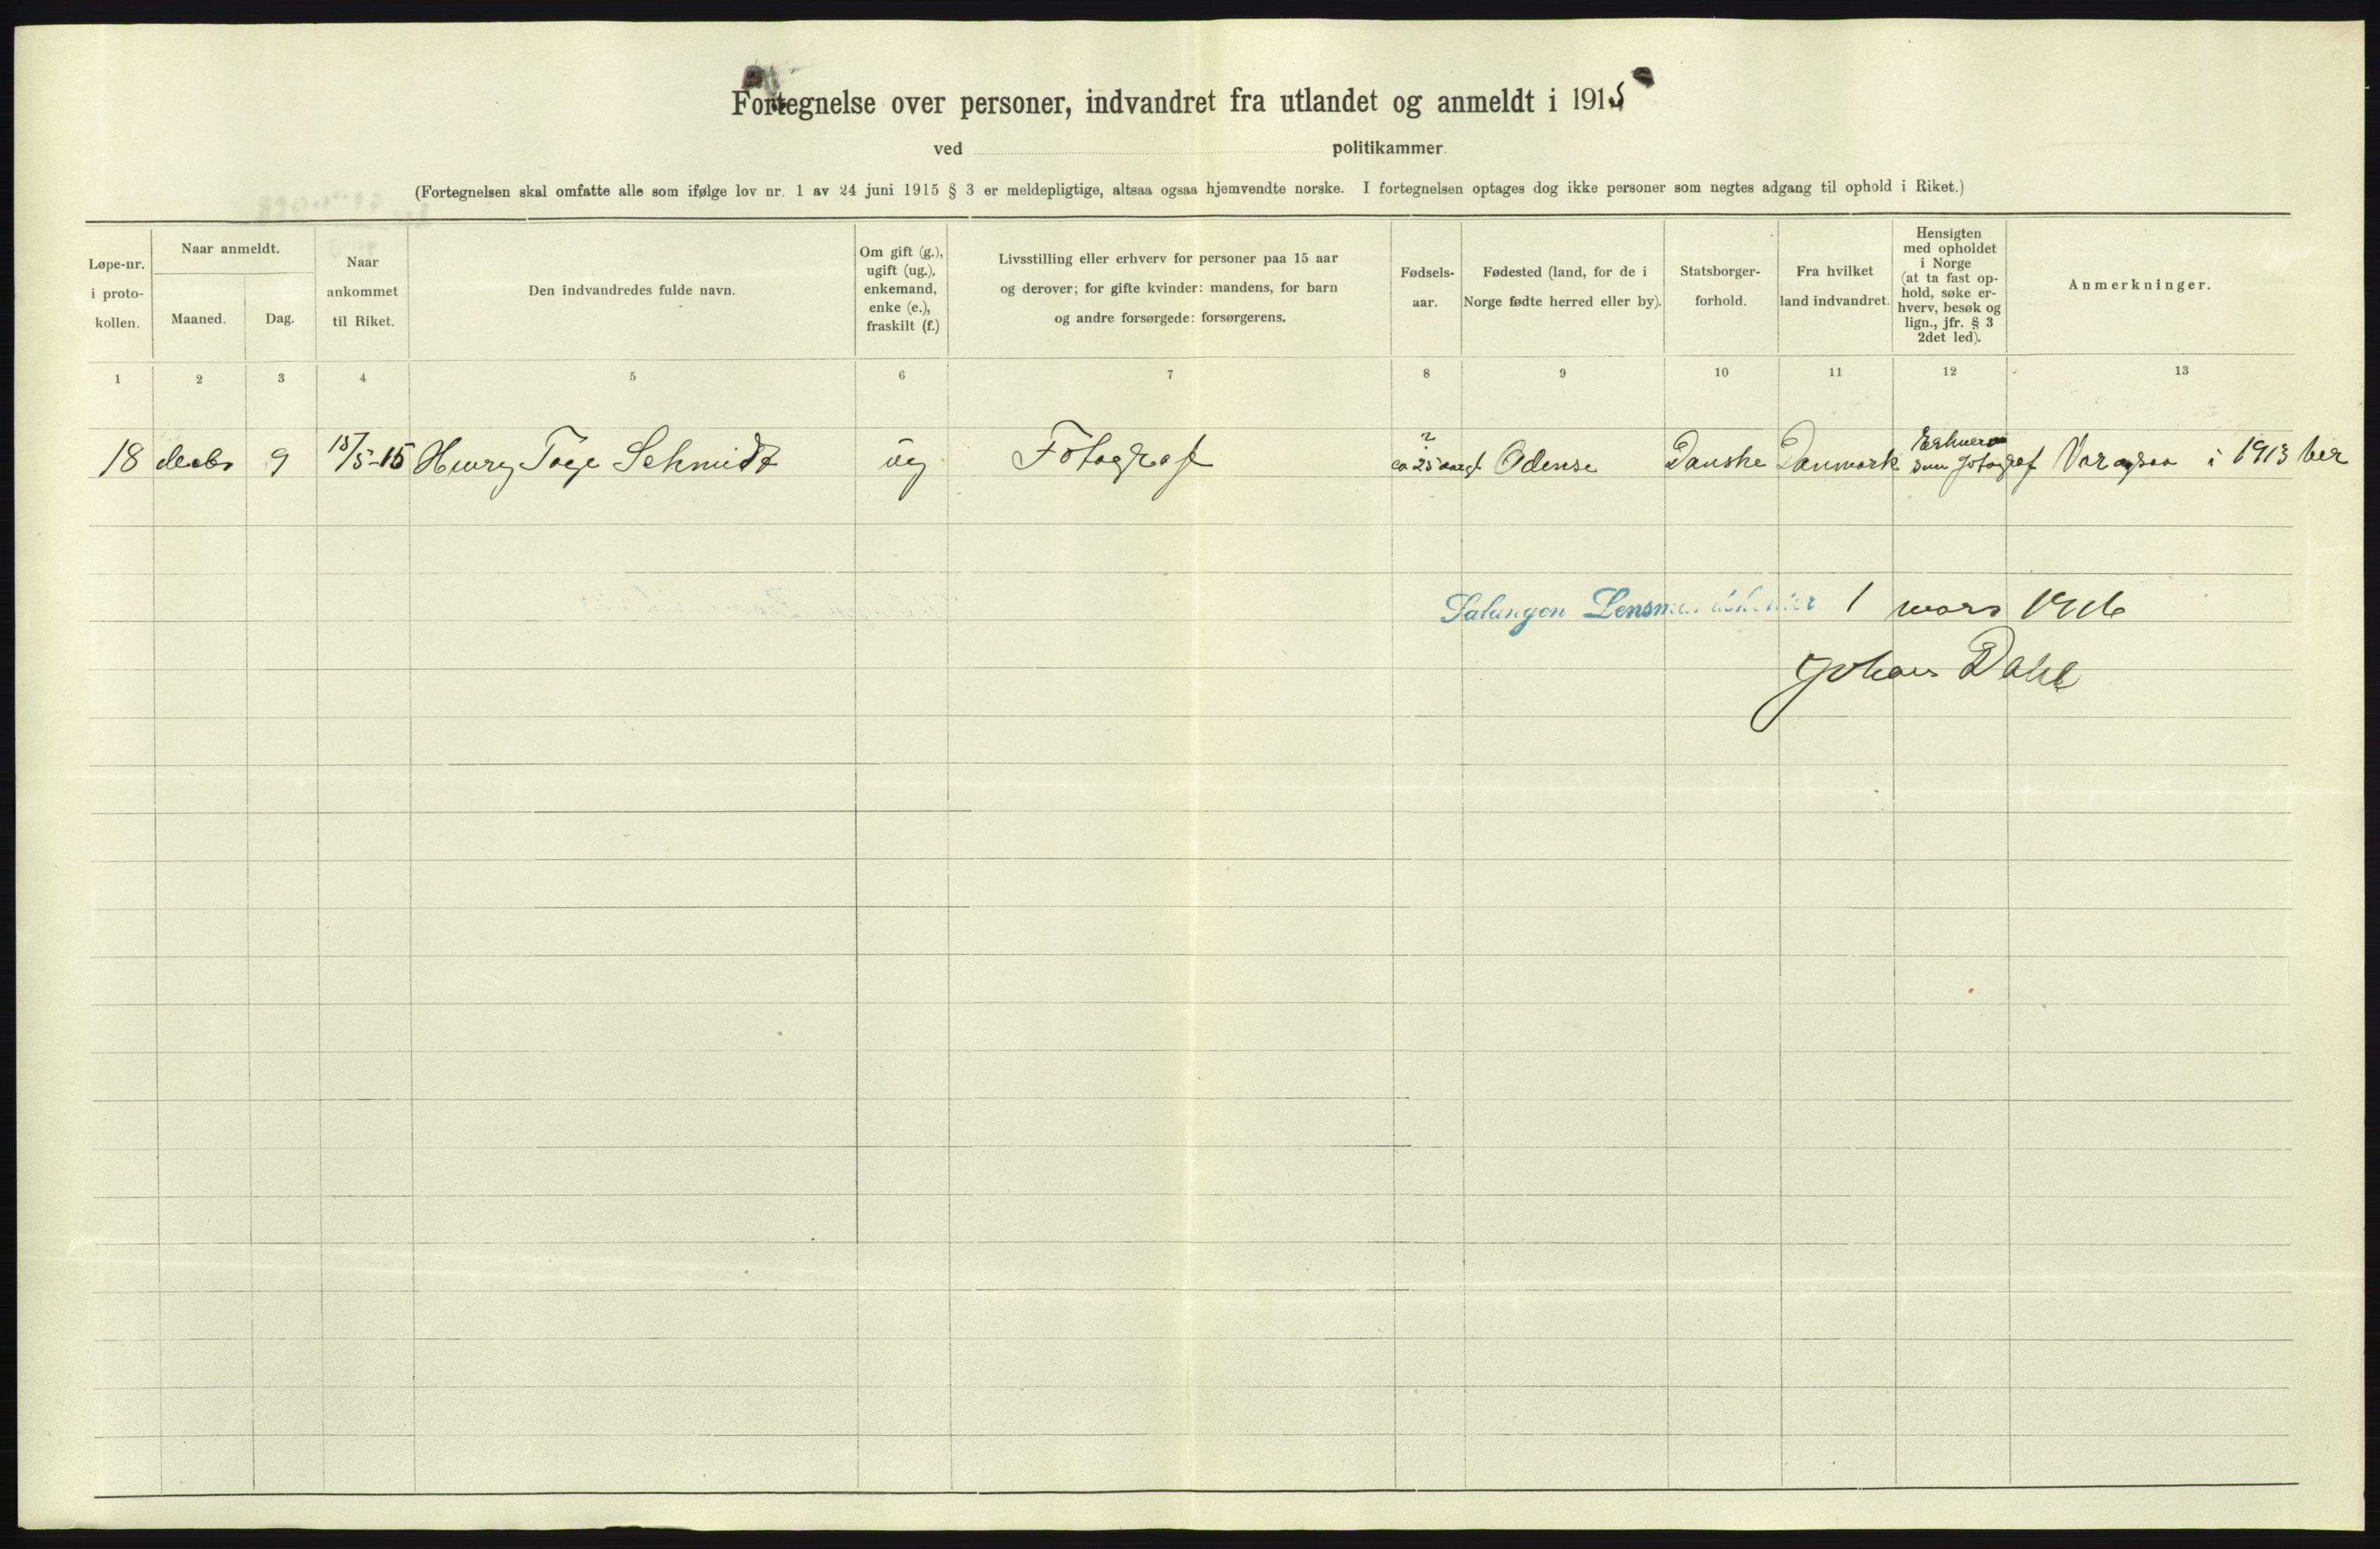 Fortegnelse over personer, indvandret fra utlandet og anmeldt i 1915
ved politikammer.
(Fortegnelsen skal omfatte alle som ifølge lov nr. 1 av 24 juni 1915 § 3 er meldepligtige, altsaa ogsaa hjemvendte norske. I fortegnelsen optages dog ikke personer som negtes adgang til ophold i Riket.)
Løpe-nr.
i proto-
kollen.
Naar anmeldt.
Maaned.
Dag.
Naar
ankommet
til Riket.
Den indvandredes fulde navn.
Om gift (g.),
ugift (ug.),
enkemand,
enke (e.),
fraskilt (f.)
Livsstilling eller erhverv for personer paa 15 aar
og derover; for gifte kvinder: mandens, for barn
og andre forsørgede: forsørgerens.
Fødsels-
aar.
Fødested (land, for de i
Norge fødte herred eller by).
Statsborger-
forhold.
Fra hvilket
land indvandret.
Hensigten
med opholdet
i Norge
(at ta fast op-
hold, søke er-
hverv, besøk og
lign., jfr. § 3
2det led).
Anmerkninger.
1 2 3 4 5 6 7 8 9 10 11 12 13
18 decbr 9 15/5-15 Henry Tage Schmidt ug Fotograf ?
ca 25 aargl Odense Danske Danmark Erhverv
som fotograf Var ogsaa i 1913 her
Salangen Lensmandskontor 1 mars 1916
Johans Dahl